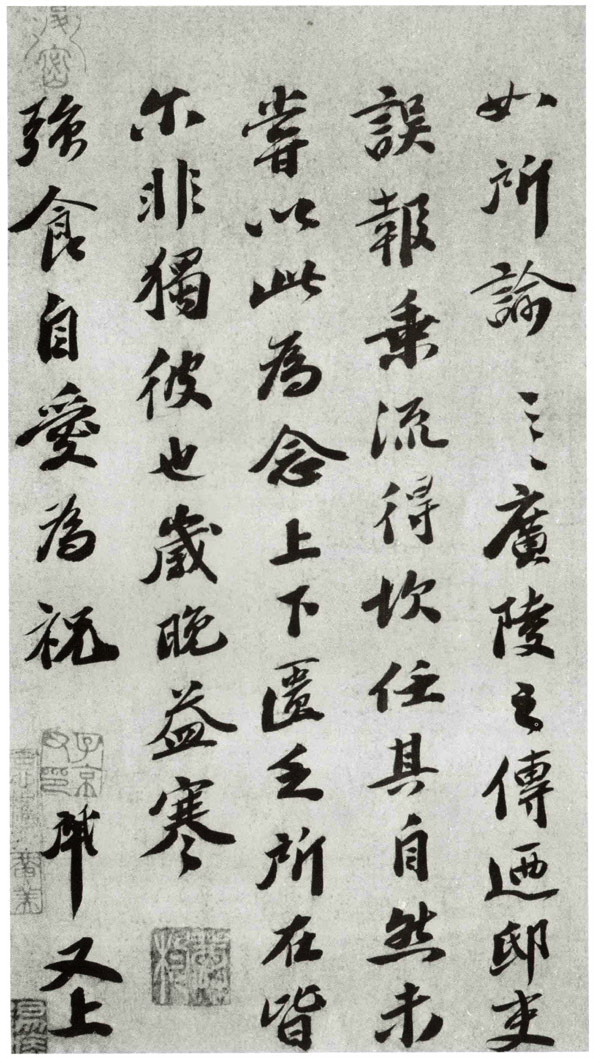 如所諭 廣陵之傳迺邸吏
誤報乗流得坎任其自然未
嘗以此為念上下匱乏所在皆
尓非獨彼也歲晚益寒
強食自愛為祝 軾又上
子京父印